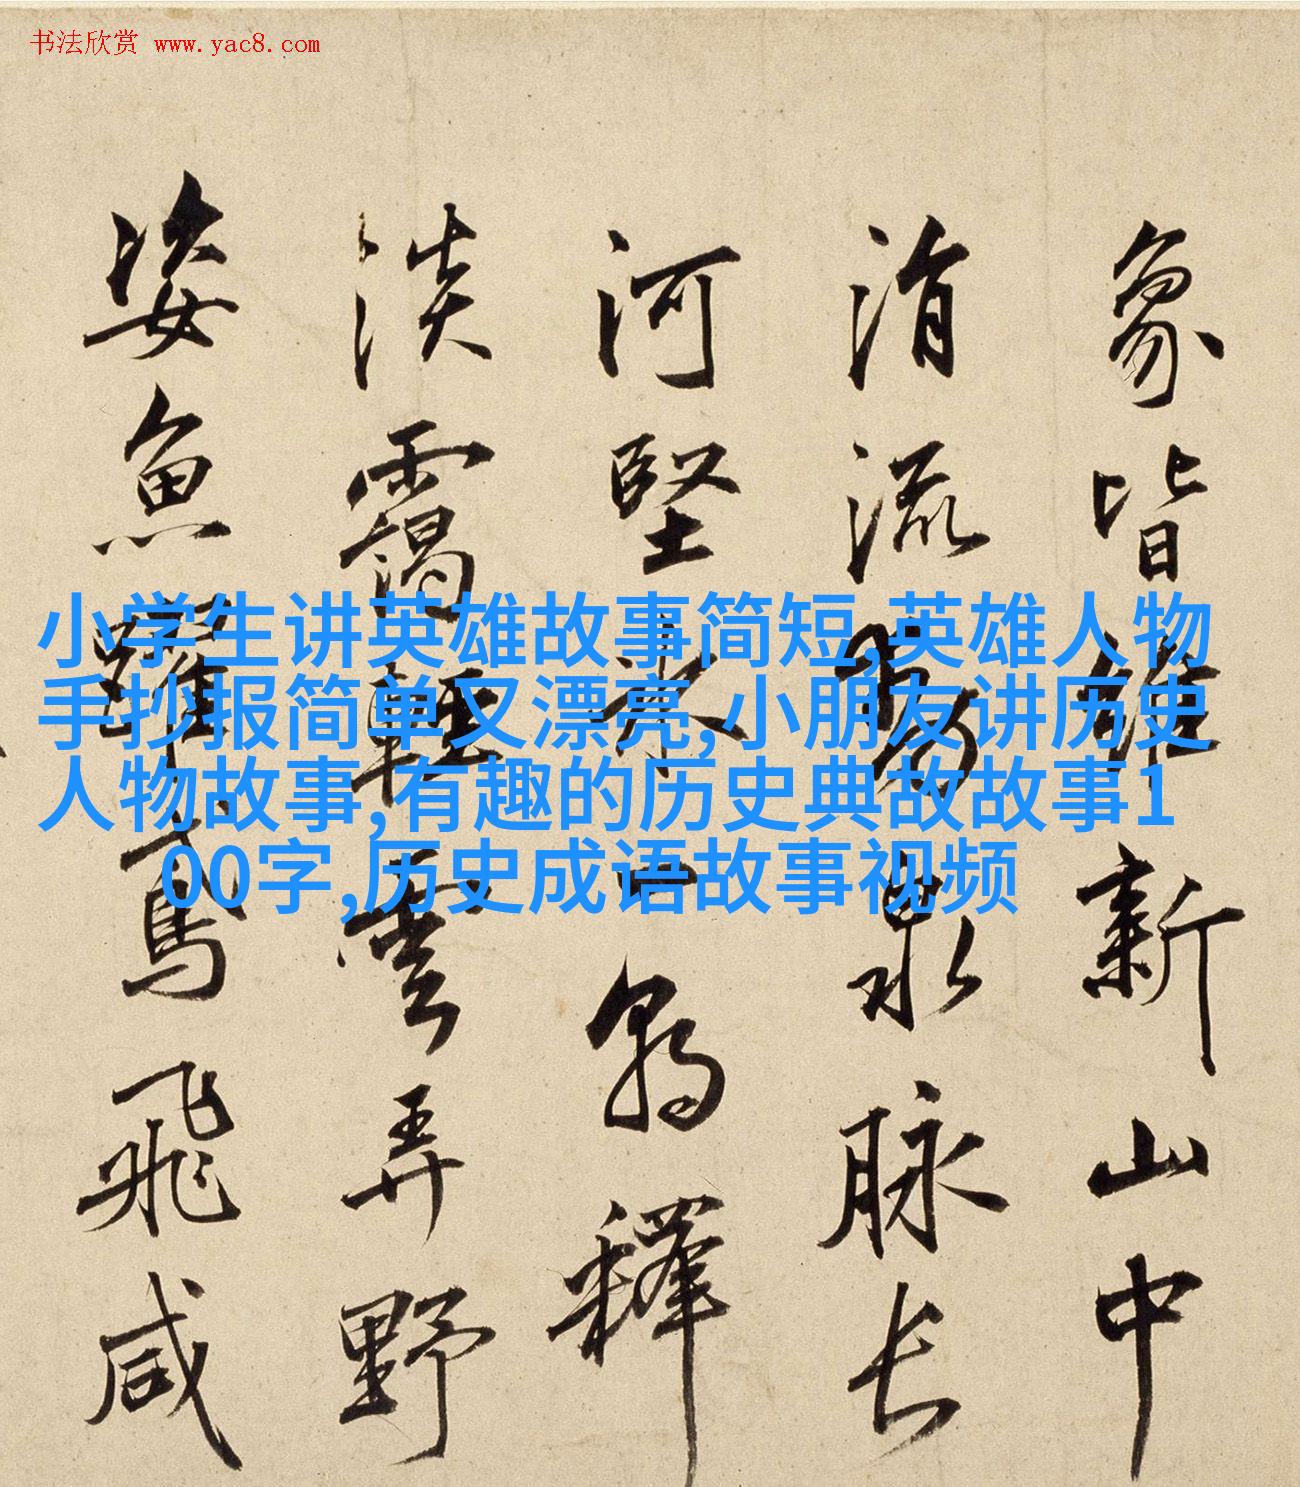 书法欣赏 www.yac8.com
小学生讲英雄故事简短,英雄人物
手抄报简单又漂亮,小朋友讲历史
人物故事,有趣的历史典故故事1
00字,历史成语故事视频
象皆維新山中
涓流泉脉長
河堅冰一朝釋
淡靄輕雲弄野
姿魚躍鳶飛咸